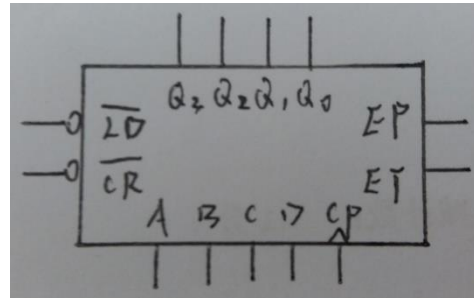 Q₃ Q₂ Q₁ Q₀
L̅D̅ EP
C̅R̅ ET
A B C D CP